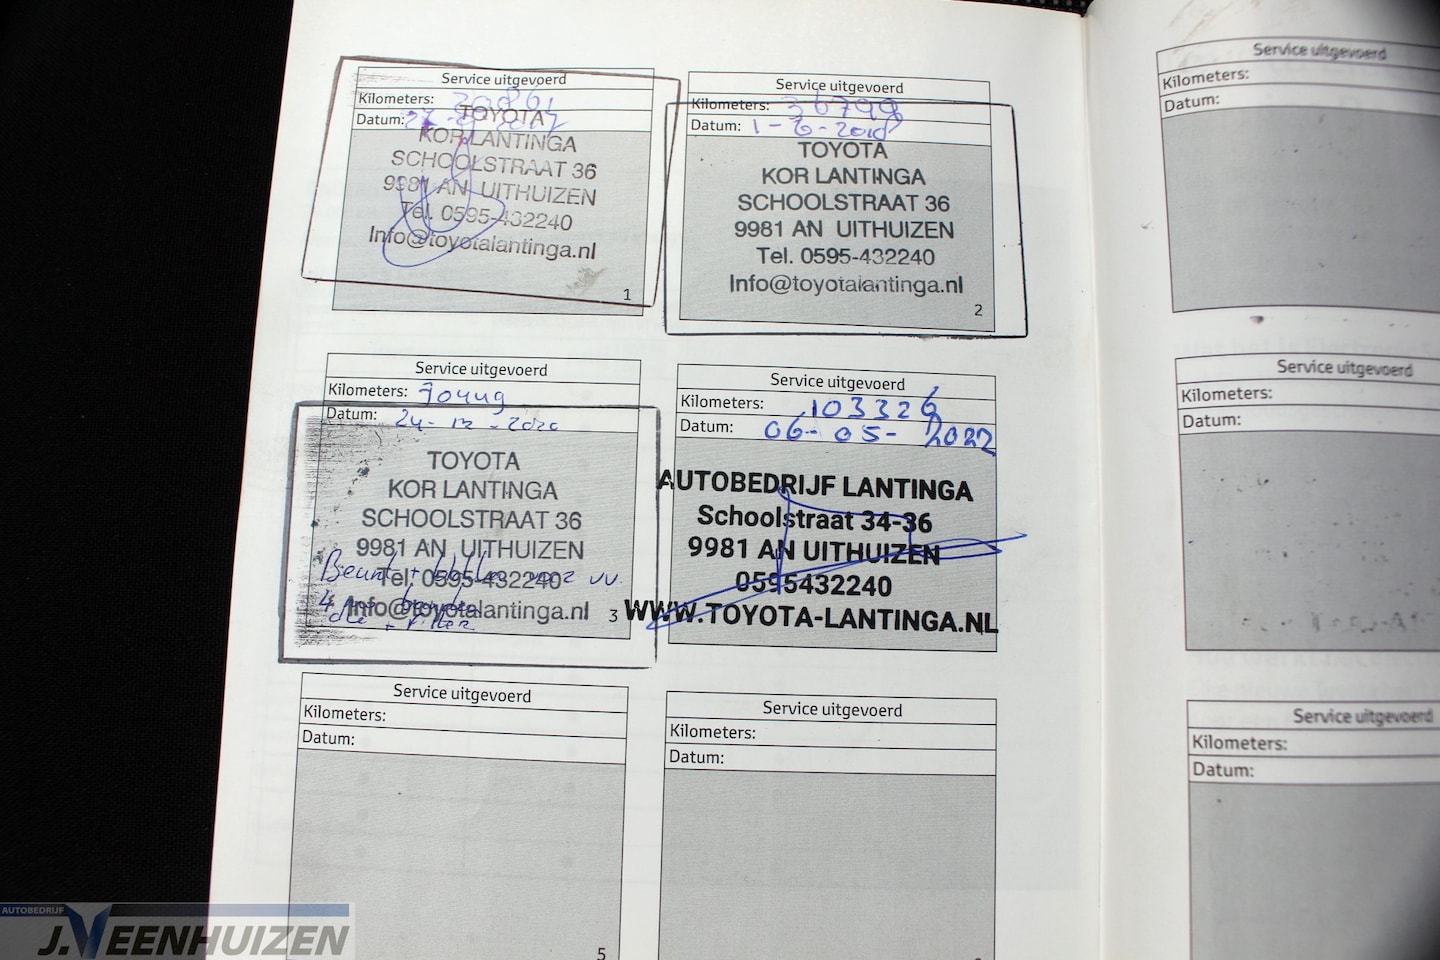 Service uitgevoerd
Kilometers: 20861
Datum:
TOYOTA
KOR LANTINGA
SCHOOLSTRAAT 36
9981 AN UITHUIZEN
Tel. 0595-432240
Info@toyotalantinga.nl
1
Service uitgevoerd
Kilometers: 36799
Datum: 1-6-2018
TOYOTA
KOR LANTINGA
SCHOOLSTRAAT 36
9981 AN UITHUIZEN
Tel. 0595-432240
Info@toyotalantinga.nl
2
Service uitgevoerd
Kilometers:
Datum: 24-12-2020
TOYOTA
KOR LANTINGA
SCHOOLSTRAAT 36
9981 AN UITHUIZEN
Tel 0595-432240
Info@toyotalantinga.nl
3
Service uitgevoerd
Kilometers: 103326
Datum: 06-05-2022
AUTOBEDRIJF LANTINGA
Schoolstraat 34-36
9981 AN UITHUIZEN
0595432240
WWW.TOYOTA-LANTINGA.NL
Service uitgevoerd
Kilometers:
Datum:
5
Service uitgevoerd
Kilometers:
Datum:
Service uitgevoerd
Kilometers:
Datum:
Service uitgevoerd
Kilometers:
Datum:
Service uitgevoerd
Kilometers:
Datum:
AUTOBEDRIJF
J. VEENHUIZEN